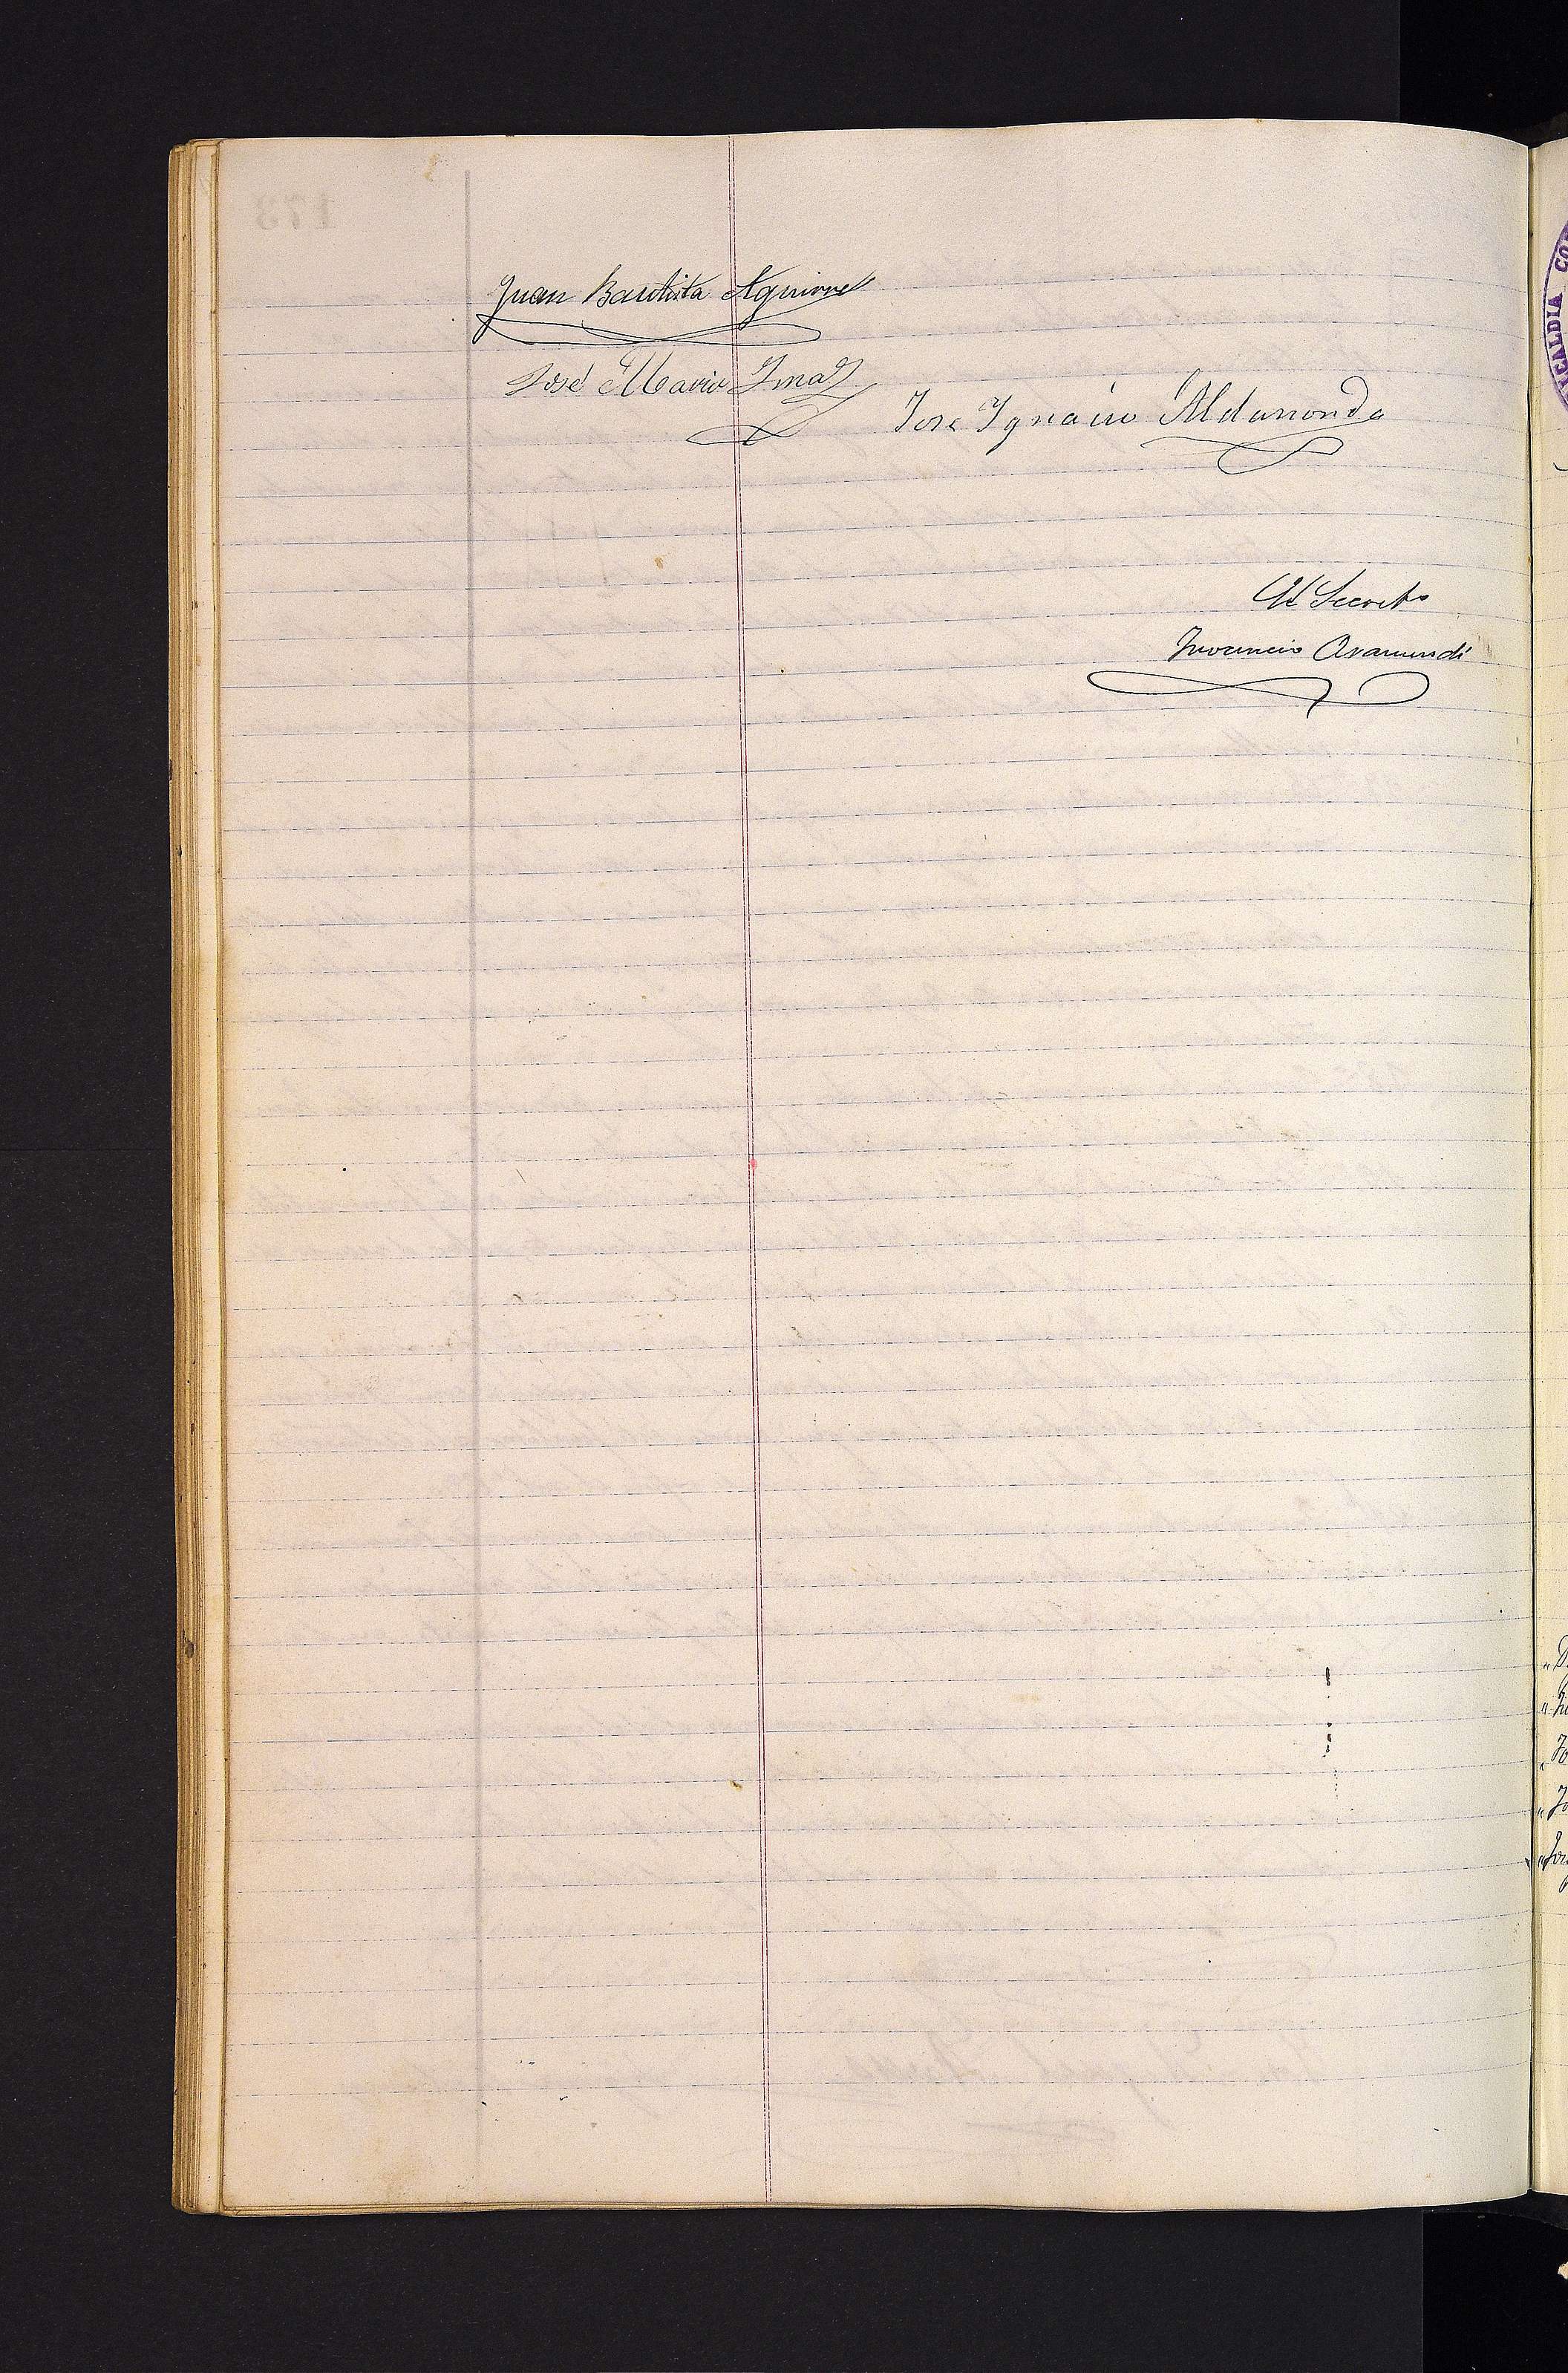 Juan Bautista Aguirre
José Maria Imaz
Jose Ignacio Aldanondo
El Secreto
Inocencio Aramendi
173